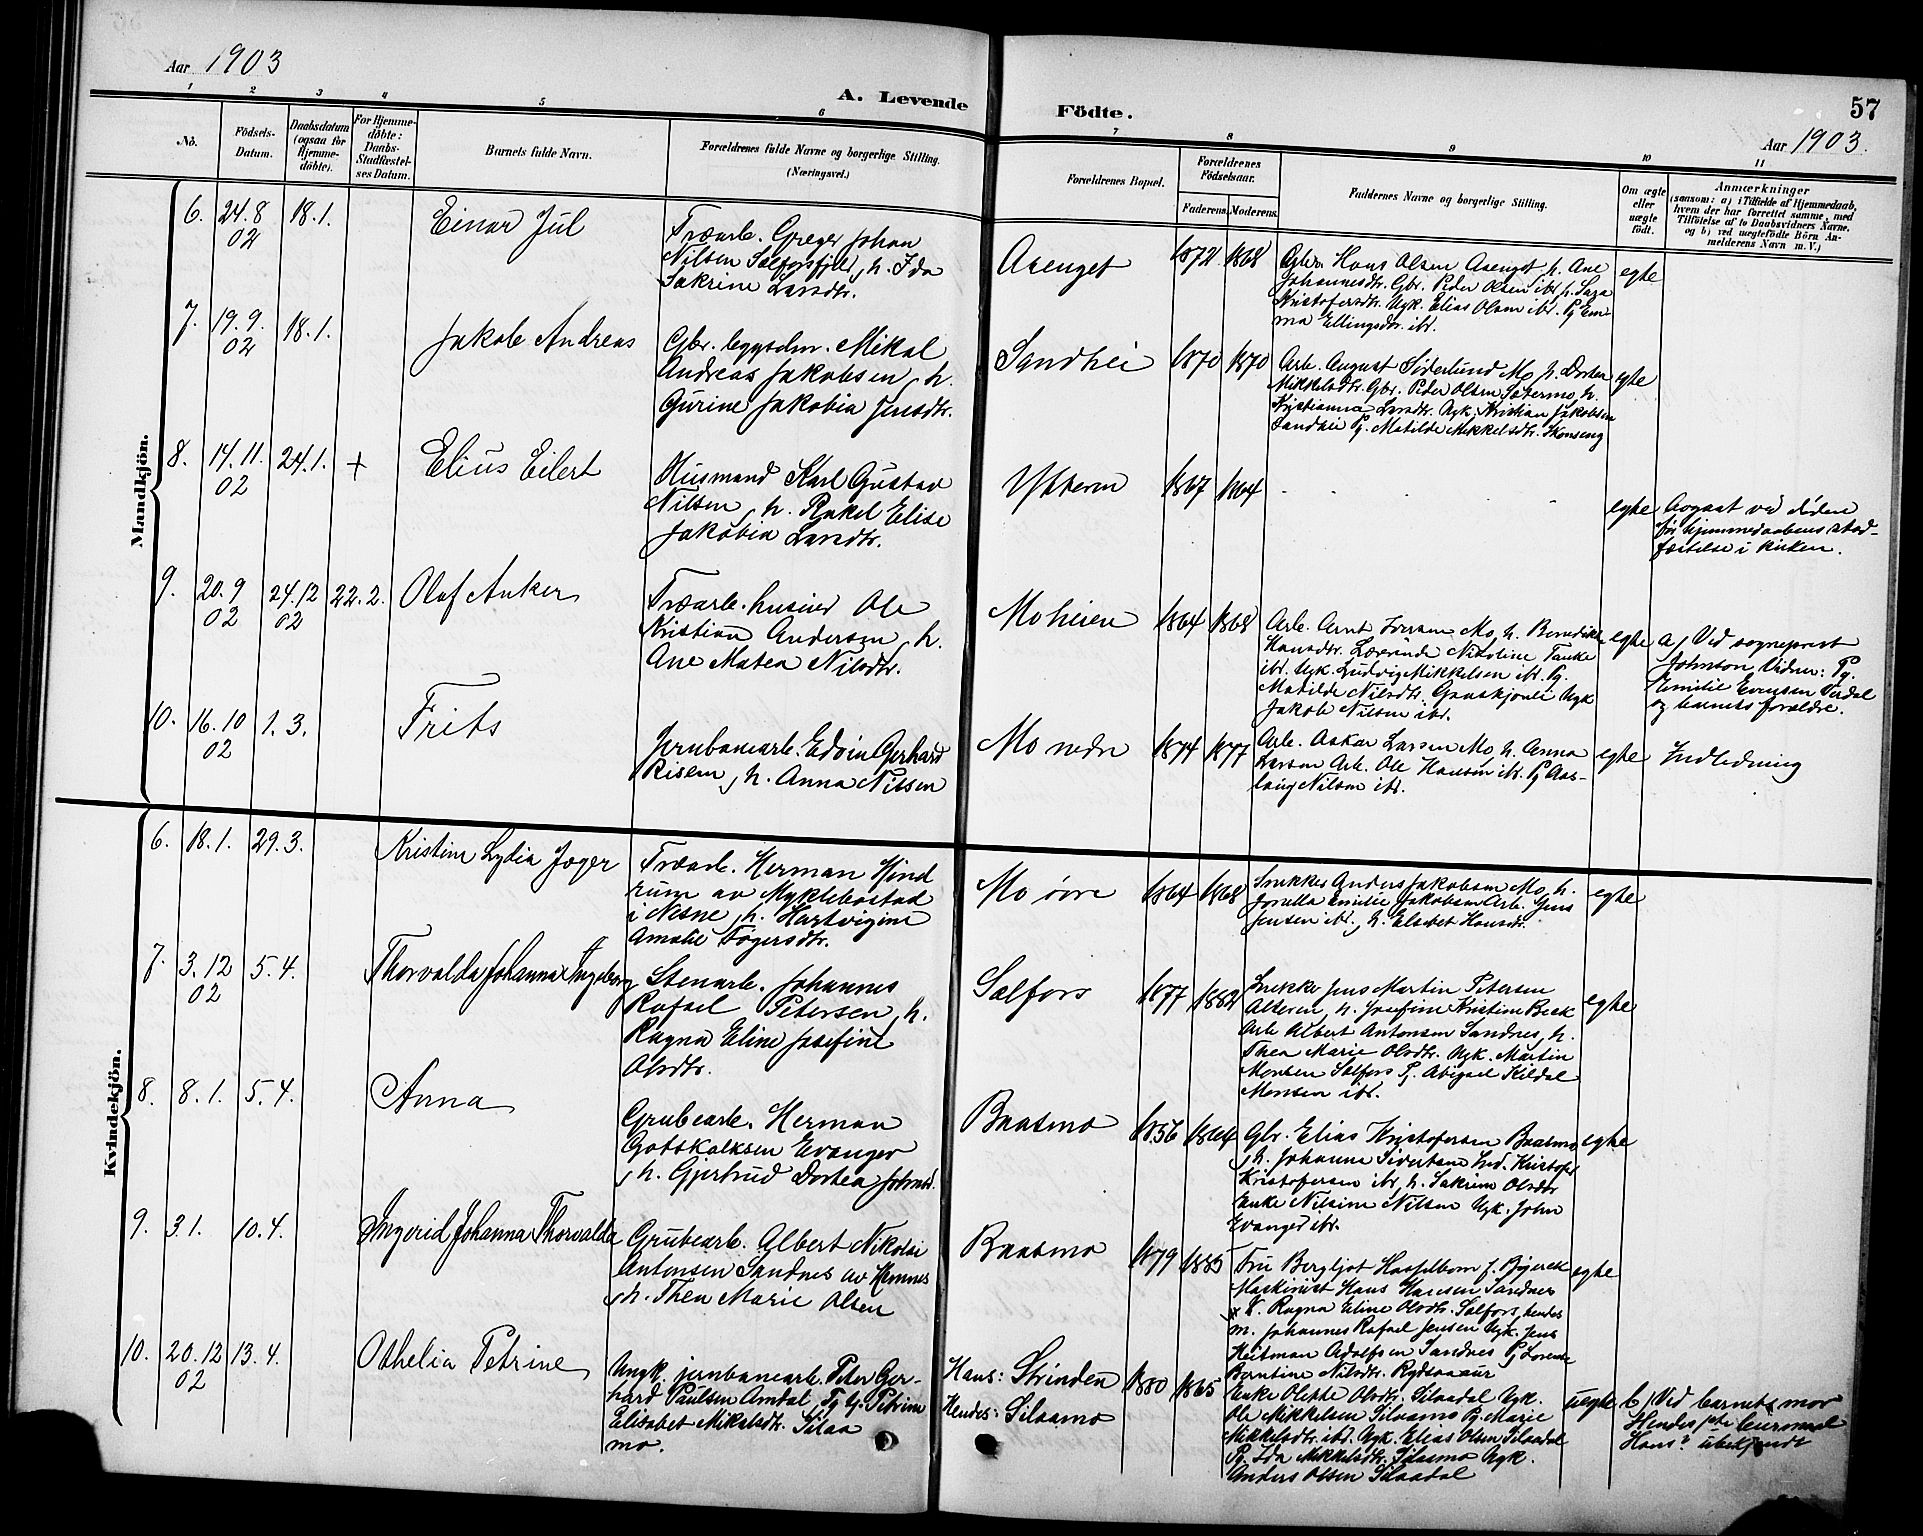 Aar 1903
A. Levende Födte.
57
Aar 1903.
1 2 3 4 5 6 7 8 9 10 11
No.
Födsels-
Datum.
Daabsdatum
(ogsaa for
Hjemme-
döbte).
For Hjemme-
döbte:
Daabs-
Stadfæstel-
ses Datum.
Barnets fulde Navn.
Forældrenes fulde Navne og borgerlige Stilling.
(Næringsvei.)
Forældrenes Bopæl.
Forældrenes
Födselsaar.
Faderens. Moderens.
Faddernes Navne og borgerlige Stilling.
Om ægte
eller
uægte
født.
Anmærkninger
(saasom: a) i Tilfælde af Hjemmedaab,
hvem der har forrettet samme, med
Tilföielse af to Daabsvidners Navne,
og b) ved uegtefödte Börn An-
melderens Navn m. V.)
Mandkjön.
6. 24.8
02
18.1.
Einar Jul
Træarb. Greger Johan
Nilsen Selforsfjeld, h. Ida
Sakrine Larsdtr.
Asenget
1872 1868
Gbr. Hans Olsen Asenget h. Ane
Johannesdtr. Gbr. Peder Olsen ibd. h. Sara
Kristofersdtr. Ugk. Elias Olsen ibd. Pg Em-
ma Ellingsdtr. ibd.
egte
7. 19.9.
02
18.1.
Jakob Andreas
Gbr. bygsdm. Mikal
Andreas Jakobsen, h.
Gurine Jakobia Jensdtr.
Sandhei
1870 1870
Arb. August Söderlund Mo h. Dorthea
Mikkelsdtr. Gbr. Peder Olsen Sætermo, h.
Kristianna Larsdtr. Ugk. Kristian Jakobsen
Sandhei Pg. Matilde Mikkelsdtr. Skonseng
egte
8. 14.11.
02
24.1. +
Elius Eilert
Husmand Karl Gustav
Nilsen, h. Rakel Elise
Jakobia Larsdtr.
Ytteren
1867 1864
egte
Avgaat ved döden
för hjemmedaabens stad-
fæstelse i kirken.
9. 20.9
02
24.12
02
22.2.
Olaf Anker
Træarb. huseier Ole
Kristian Andersen, h.
Ane Matea Nilsdtr.
Moheien
1864 1868
Arb. Arnt Iversen Mo, h. Benedikte
Hansdtr. Lærerinde Nikoline Tanke
ibd. Ugk. Ludvig Mikkelsen ibd. Pg.
Matilde Nilsdtr. Ugk
Jakob Nilsen ibd.
egte
a) Ved sogneprest
Johnson Vidner: Pg.
Emilie Evensen Verdal
og barnets forældre.
10. 16.10
02
1.3.
Frits
Jernbanearb. Edvin Gerhard
Risem, h. Anna Nilsen
Mo nedre
1874 1877
Arb. Oskar Larsen Mo h. Anna
Larsen Arb. Ole Hansen ibd. Pg Aas-
laug Nilsen ibd.
egte
Indledning
Kvindekjön.
6. 18.1. 29.3.
Kristine Lydia Jæger
Træarb. Herman Hind
rum av Myklebostad
i Nesne, h. Hartvigine
Amalie Tögersdtr.
Mo övre
1864 1868
Snekker Anders Jakobsen Mo, h.
Jorulla Emilie Jakobsen Arb. Jens
Jensen ibd., h. Elsebet Hansdtr.
egte
7. 3.12
02
5.4.
Thorvalda Johanna Ingeborg
Stenarb. Johannes
Rafael Petersen, h.
Ragna Eline Josefine
Olsdtr.
Selfors
1877 1882
Snekker Jens Martin Petersen
Alteren, h. Josefine Kristine Beck
Arb. Albert Antonsen Sandnes, h.
Thea Marie Olsdtr. Ugk. Martin
Monsen Selfors Pg. Abigael Kildal
Monsen ibd.
egte
8. 8.1. 5.4.
Anna
Grubearb. Herman
Gotskalksen Evanger
, h. Gjertrud Dortea Johnsd.
Baasmo
1856 1864
Gbr. Elias Kristofersen Baasmo
, h. Johanna Sivertsen Ind. Kristofer
Kristofersen ibd, h. Sakrine Olsdtr
Enke Nilsine Nilsen Ugk. John
Evanger ibd.
egte
9. 3.1. 10.4.
Ingerid Johanna Thorvalda
Grubearb. Albert Nikolai
Antonsen Sandnes av Hemnes
, h. Thea Marie Olsen
Baasmo
1879 1885
Fru Bergljot Hasselbom f. Bjerck
Maskinist Hans Hansen Sandnes
Ragna Eline Olsdtr. Selfors, hendes
m. Johannes Rafael Jensen Ugk. Jens
Heitman Adolfsen Sandnes Pg Lorense
Berntine Nilsdtr. Rydsaaaur
egte
10. 20.12
02
13.4.
Othelia Petrine
Ungk. jernbanearb. Peter Ger-
hard Paulsen Amdal, Pg. Petrine
Elisabet Mikalsdtr. Silaa
mo.
Hans: Strinden
Hendes: Silaamo
1880 1865
Enke Olekke Olsdtr. Silaadal Ugk.
Ole Mikkelsen Silaamo Pg. Marie
Mikkelsdtr. ibd. Ugk. Elias Olsen Silaadal
Pg. Ida Mikkelsdtr. Silaamo Ugk.
Anders Olsen Silaadal
uegte
b) Ved barnets mor
Hendes leiermaal
Hans: ubekjendt